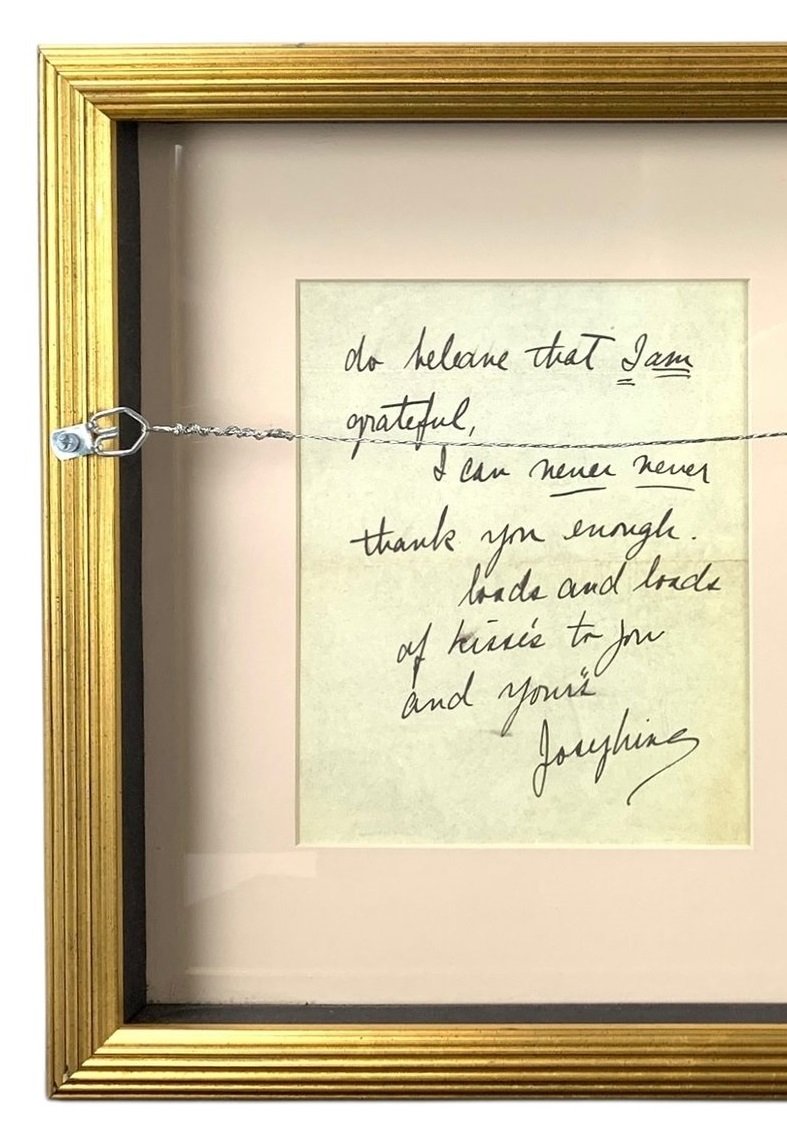 do beleave that I am
grateful,
I can never never
thank you enough.
loads and loads
of kisses to you
and yours
Josephine